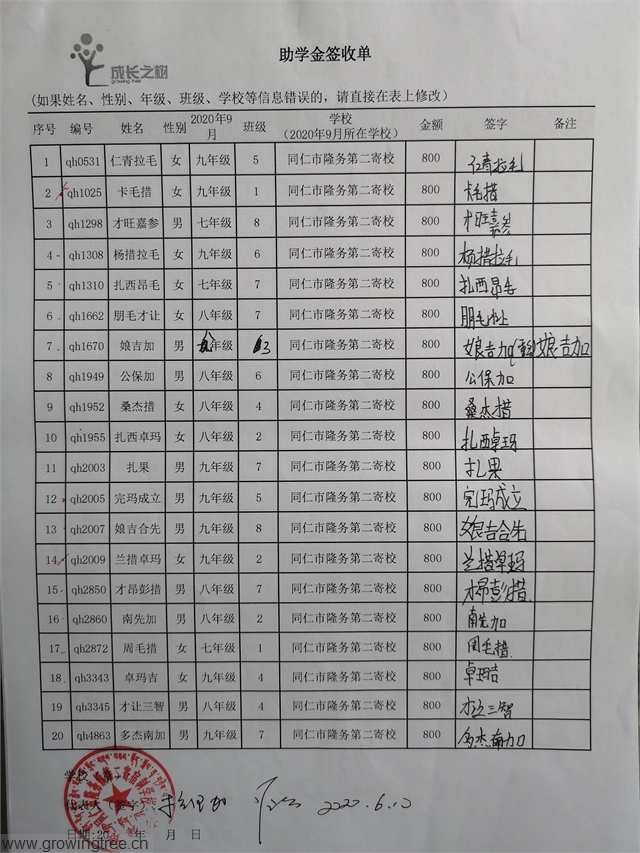 成长之树
growing tree
助学金签收单
(如果姓名、性别、年级、班级、学校等信息错误的，请直接在表上修改)
序号 编号 姓名 性别 2020年9月 班级 学校（2020年9月所在学校） 金额 签字 备注
1 qh0531 仁青拉毛 女 九年级 5 同仁市隆务第二寄校 800 仁青拉毛
2 qh1025 卡毛措 女 九年级 1 同仁市隆务第二寄校 800 卡毛措
3 qh1298 才旺嘉参 男 七年级 8 同仁市隆务第二寄校 800 才旺嘉参
4 qh1308 杨措拉毛 女 九年级 6 同仁市隆务第二寄校 800 杨措拉毛
5 qh1310 扎西昂毛 女 七年级 7 同仁市隆务第二寄校 800 扎西昂毛
6 qh1662 朋毛才让 女 八年级 7 同仁市隆务第二寄校 800 朋毛才让
7 qh1670 娘吉加 男 年级 3 同仁市隆务第二寄校 800 娘吉加 娘吉加
8 qh1949 公保加 男 八年级 6 同仁市隆务第二寄校 800 公保加
9 qh1952 桑杰措 女 八年级 4 同仁市隆务第二寄校 800 桑杰措
10 qh1955 扎西卓玛 女 八年级 2 同仁市隆务第二寄校 800 扎西卓玛
11 qh2003 扎果 男 九年级 7 同仁市隆务第二寄校 800 扎果
12 qh2005 完玛成立 男 九年级 5 同仁市隆务第二寄校 800 完玛成立
13 qh2007 娘吉合先 男 九年级 8 同仁市隆务第二寄校 800 娘吉合先
14 qh2009 兰措卓玛 女 九年级 2 同仁市隆务第二寄校 800 兰措卓玛
15 qh2850 才昂彭措 男 八年级 7 同仁市隆务第二寄校 800 才昂彭措
16 qh2860 南先加 男 八年级 2 同仁市隆务第二寄校 800 南先加
17 qh2872 周毛措 女 七年级 1 同仁市隆务第二寄校 800 周毛措
18 qh3343 卓玛吉 女 九年级 4 同仁市隆务第二寄校 800 卓玛吉
19 qh3345 才让三智 男 八年级 4 同仁市隆务第二寄校 800 才让三智
20 qh4863 多杰南加 男 九年级 7 同仁市隆务第二寄校 800 多杰南加
学校（章）
代表人（签字）： 2020.6.10
日期:20 年 月 日
www.growingtree.ch